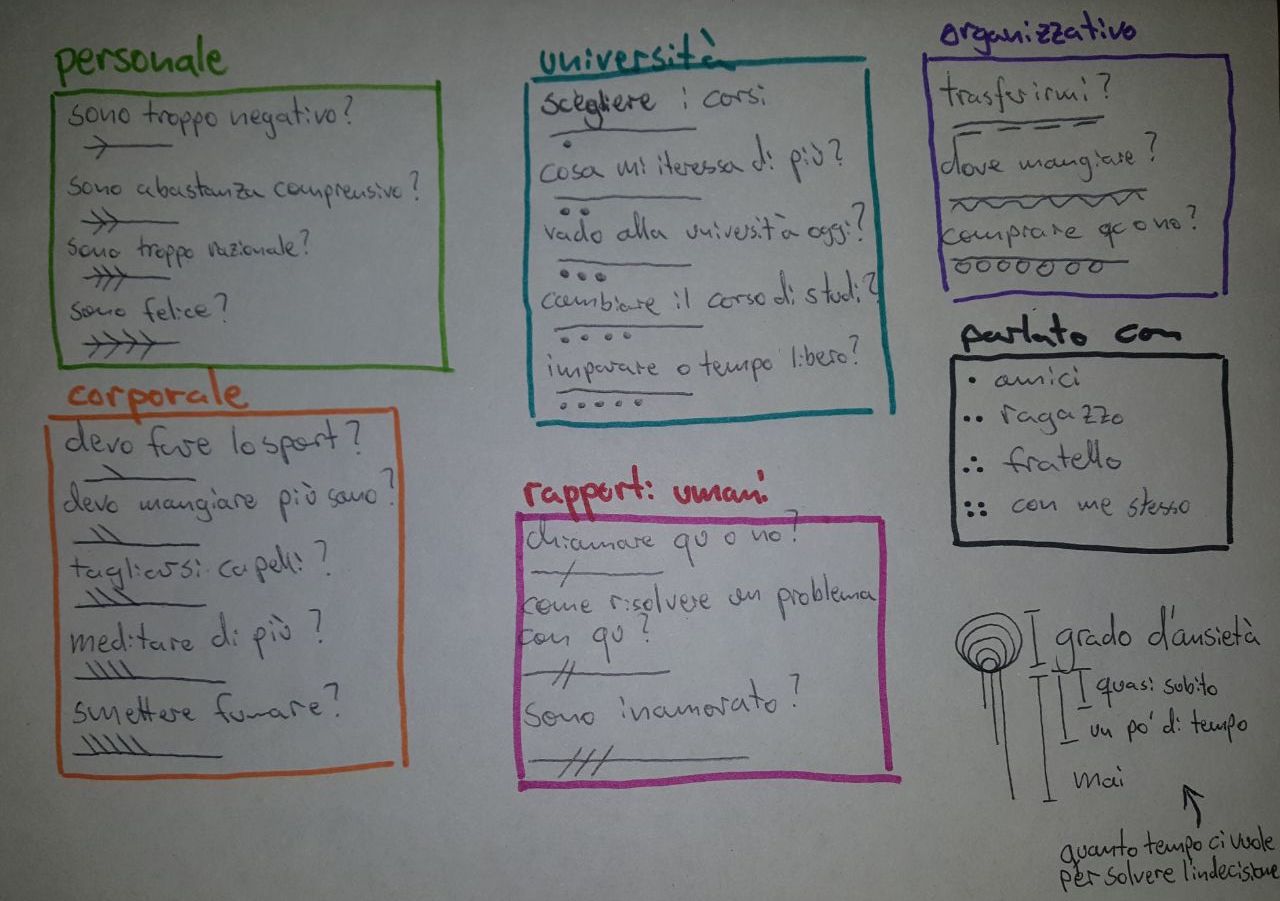 personale
sono troppo negativo?
sono abastanza comprensivo?
sono troppo razionale?
sono felice?
corporale
devo fare lo sport?
devo mangiare più sano?
tagliarsi capelli?
meditare di più?
smettere fumare?
università
scegliere i corsi
cosa mi iteressa di più?
vado alla università oggi?
cambiare il corso di studi?
imparare o tempo libero?
rapporti umani
chiamare qu o no?
come risolvere un problema
con qu?
sono inamorato?
organizzativo
trasferirmi?
dove mangiare?
comprare qc o no?
parlato con
amici
ragazzo
fratello
con me stesso
grado d'ansietà
quasi subito
un po' di tempo
mai
quanto tempo ci vuole
per solvere l'indecisione